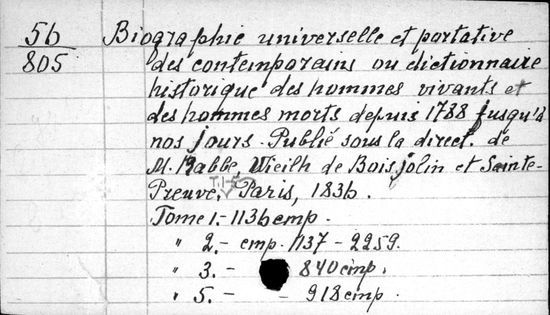 56 Biographie universelle et portative
805 des contemporains ou dictionnaire
historique des hommes vivants et
des hommes morts depuis 1788 jusqu'à
nos jours. Publié sous la direct. de
M. Rabbe, Vieilh de Boisjolin et Sainte-
Preuve. T.1-5 Paris, 1836.
Tome 1.- 1136 стр.
" 2.- стр. 1137 - 2259.
" 3. - 840 стр.
" 5. - - 918 стр.